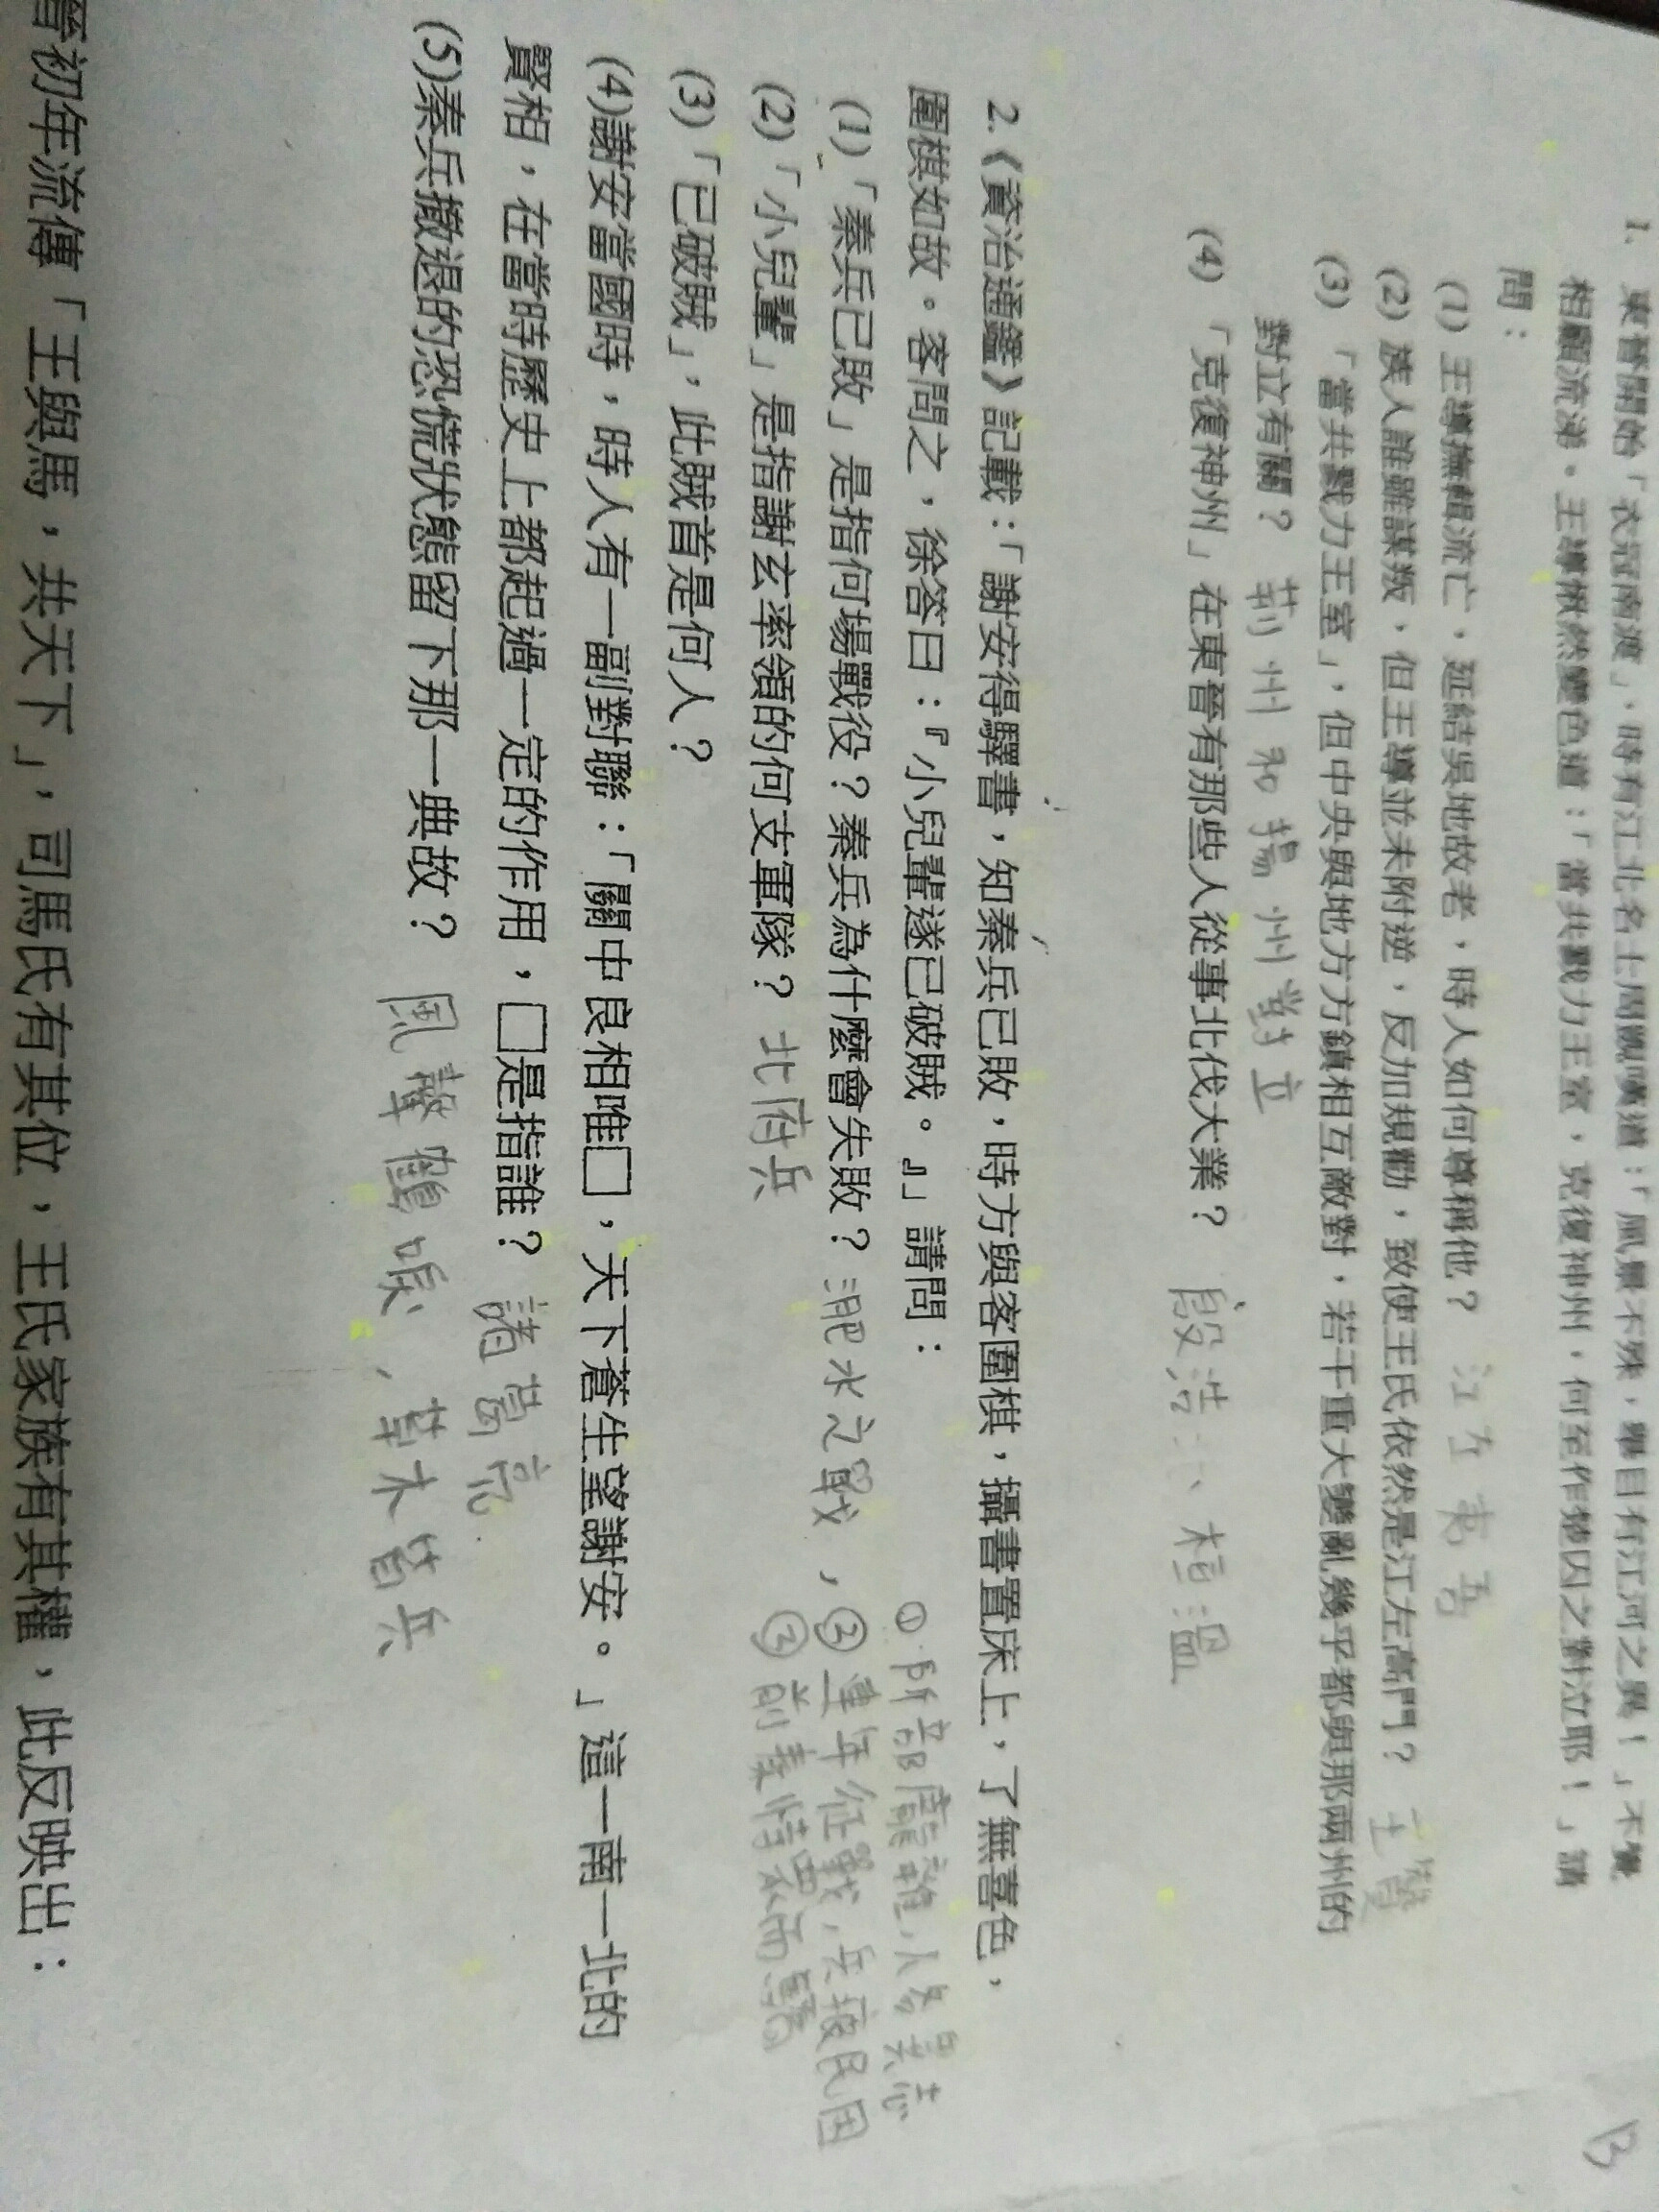 1、東晉開始「衣冠南渡」，時有江北名士周顗嘆道：「風景不殊，舉目有江河之異！」不覺
相顧流涕。王導愀然變色道：「當共戮力王室，克復神州，何至作楚囚之對泣耶！」請
問：
(1) 王導撫輯流亡，延結吳地故老，時人如何尊稱他？ 江左夷吾
(2) 族人誰雖謀叛，但王導並未附逆，反加規勸，致使王氏依然是江左高門？ 王
(3) 「當共戮力王室」，但中央與地方方鎮相互敵對，若干重大變亂幾乎都與那兩州的
對立有關？ 荊州和揚州對立
(4) 「克復神州」在東晉有那些人從事北伐大業？ 殷浩、桓溫
2.《資治通鑑》記載：「謝安得驛書，知秦兵已敗，時方與客圍棋，攝書置床上，了無喜色，
圍棋如故。客問之，徐答曰：『小兒輩遂已破賊。』」請問：
(1)「秦兵已敗」是指何場戰役？秦兵為什麼會失敗？淝水之戰，
① 所部龐雜，人多異志
② 連年征戰，兵疲民困
③ 前秦恃眾而驕
(2)「小兒輩」是指謝玄率領的何支軍隊？ 北府兵
(3)「已破賊」，此賊首是何人？
(4)謝安當國時，時人有一副對聯：「關中良相唯□，天下蒼生望謝安。」這一南一北的
賢相，在當時歷史上都起過一定的作用，□是指誰？ 諸葛亮
(5)秦兵撤退的恐慌狀態留下那一典故？ 風聲鶴唳，草木皆兵
晉初年流傳「王與馬，共天下」，司馬氏有其位，王氏家族有其權，此反映出：
B